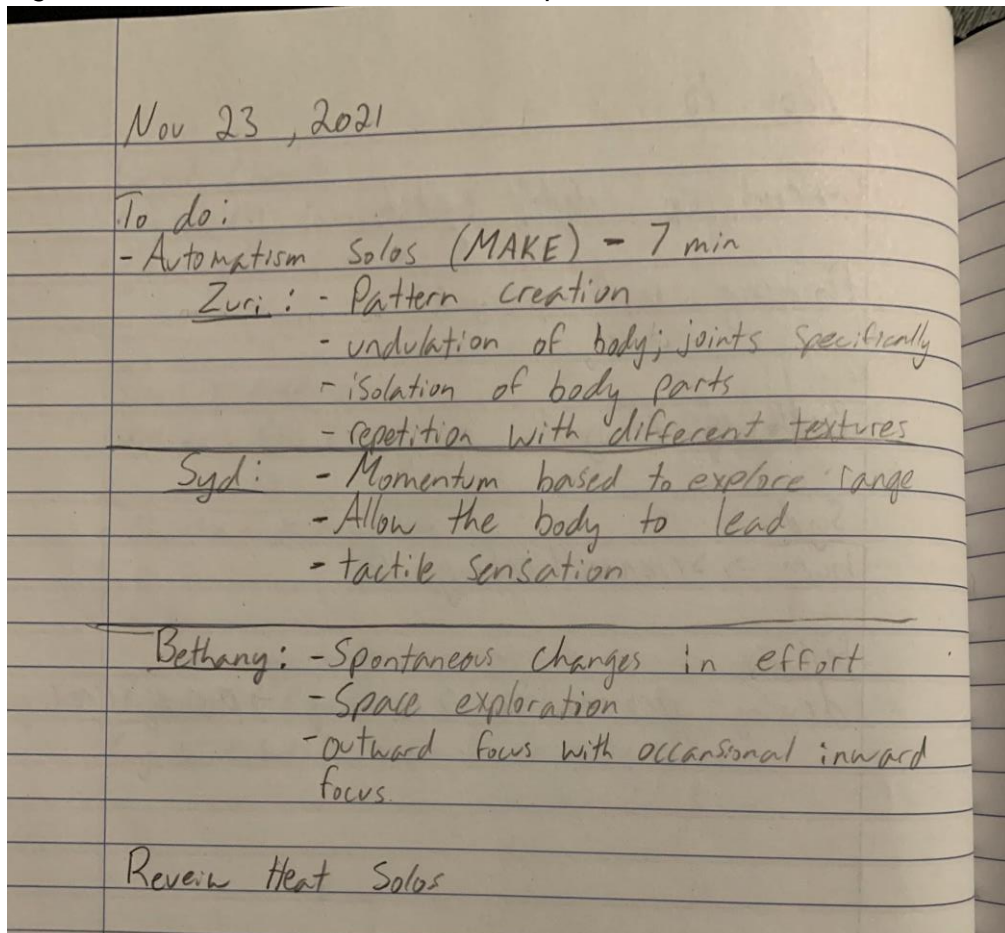 Nov 23, 2021
To do:
- Automatism Solos (MAKE) - 7 min
Zuri: - Pattern Creation
- undulation of body; joints specifically
- isolation of body parts
- repetition with different textures
Syd: - Momentum based to explore range
- Allow the body to lead
- tactile sensation
Bethany: - Spontaneous changes in effort
- Space exploration
- outward focus with occansional inward
focus.
Reveiw Heat Solos